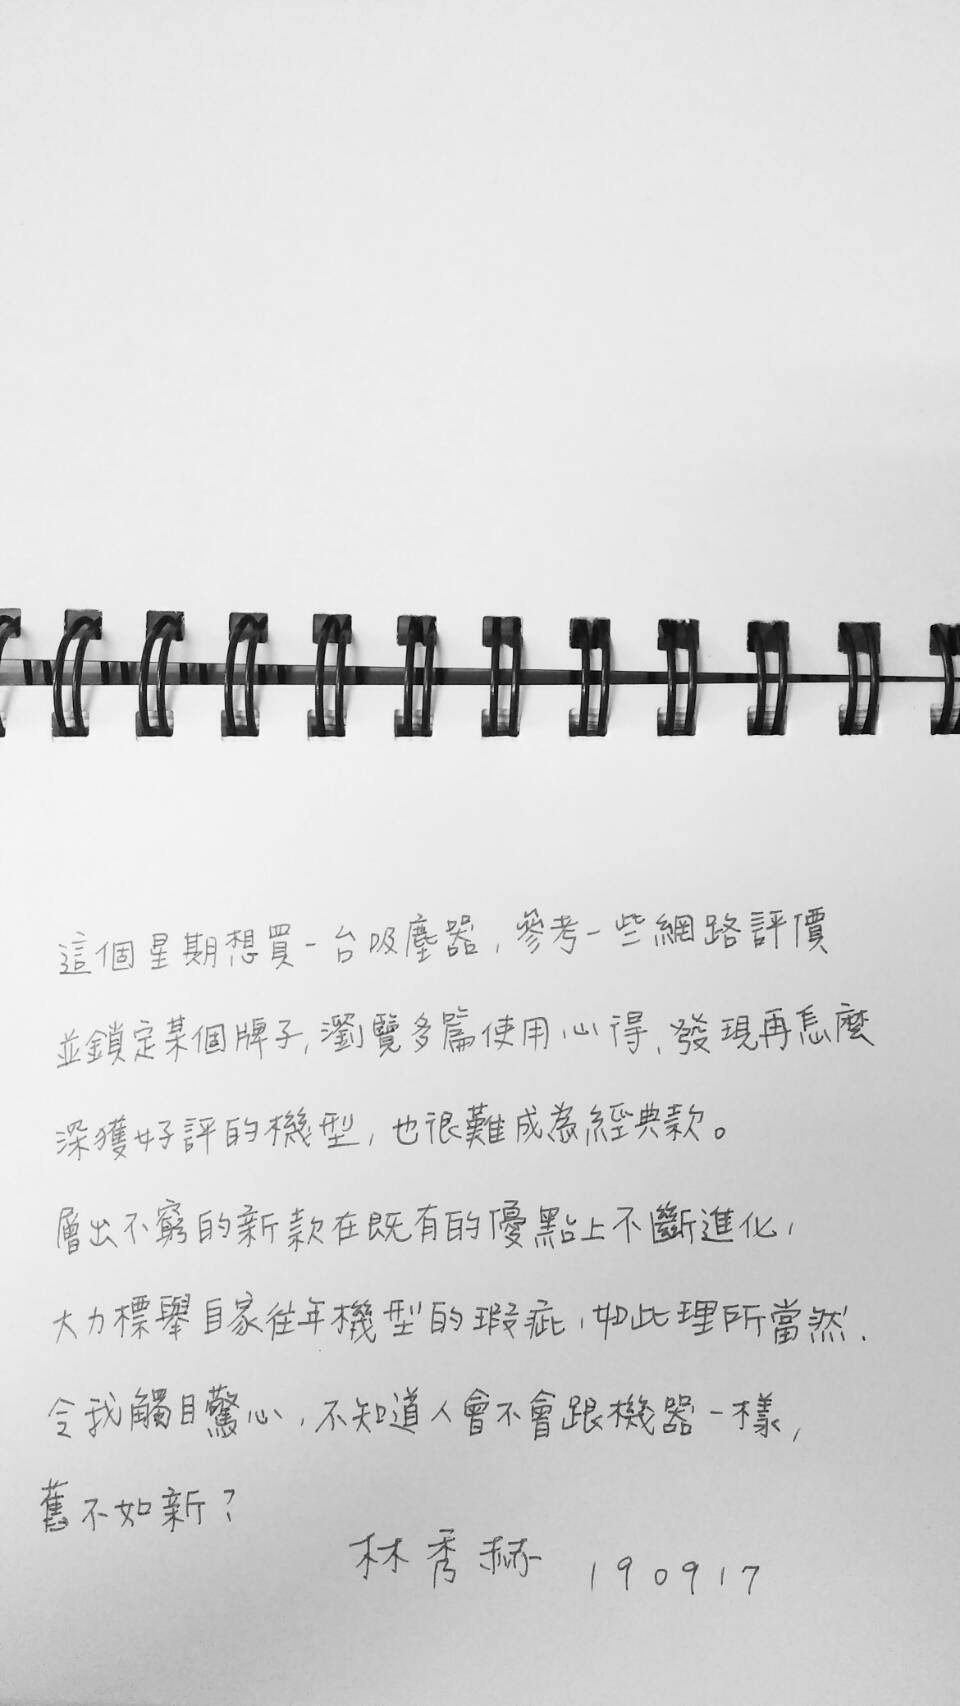 這個星期想買一台吸塵器,參考一些網路評價
並鎖定某個牌子,瀏覽多篇使用心得,發現再怎麼
深獲好評的機型,也很難成為經典款。
層出不窮的新款在既有的優點上不斷進化,
大力標舉自家往年機型的瑕疵,如此理所當然,
令我觸目驚心,不知道人會不會跟機器一樣,
舊不如新?
林秀赫 190917